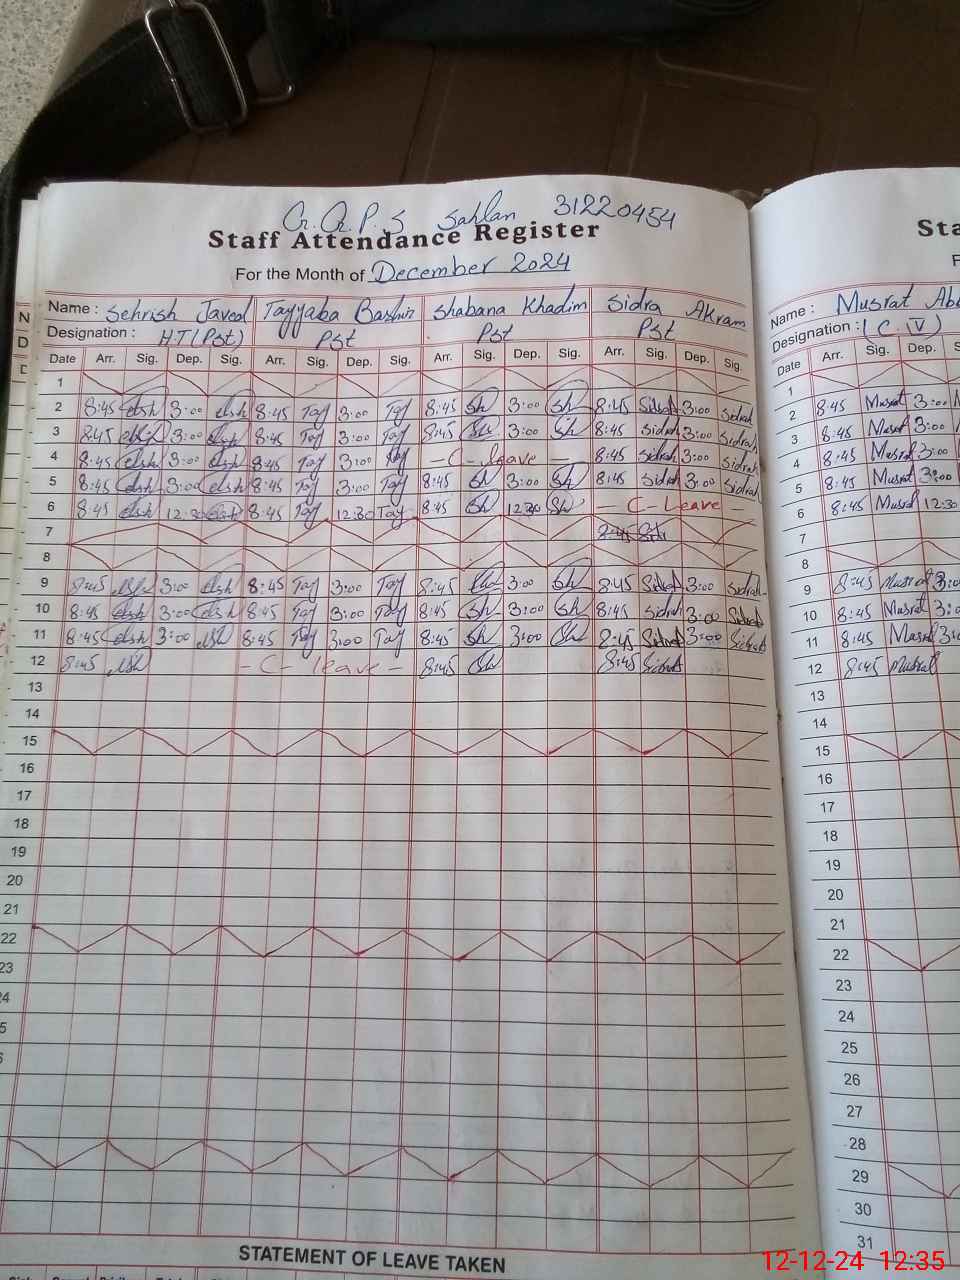 G.G.P.S Sahlan 31220454
Staff Attendance Register
For the Month of December 2024
Name : Sehrish Javed Tayyaba Bashir Shabana Khadim Sidra Akram
Designation : H.T(Pst) Pst Pst Pst
Date Arr. Sig. Dep. Sig. Arr. Sig. Dep. Sig. Arr. Sig. Dep. Sig. Arr. Sig. Dep. Sig.
1
2 8:45 3:00 8:45 Tay 3:00 Tay 8:45 Sh 3:00 Sh 8:45 Sidrah 3:00 Sidrah
3 845 3:00 8:45 Tay 3:00 Tay 8:45 Sh 3:00 Sh 8:45 Sidrah 3:00 Sidrah
4 8:45 3:00 8:45 Tay 3:00 Tay - C - leave - 8:45 Sidrah 3:00 Sidrah
5 8:45 3:00 8:45 Tay 3:00 Tay 8:45 Sh 3:00 Sh 8:45 Sidrah 3:00 Sidrah
6 8:45 12:30 8:45 Tay 12:30 Tay 8:45 Sh 12:30 Sh - C - Leave -
7 8:45
8
9 8:45 3:00 8:45 Tay 3:00 Tay 8:45 3:00 Sh 8:45 Sidrah 3:00 Sidrah
10 8:45 3:00 8:45 Tay 3:00 Tay 8:45 Sh 3:00 Sh 8:45 Sidrah 3:00 Sidrah
11 8:45 3:00 8:45 Tay 3:00 Tay 8:45 Sh 3:00 Sh 8:45 Sidrah 3:00 Sidrah
12 8:45 - C - leave - 8:45 Sh 8:45 Sidrah
13
14
15
16
17
18
19
20
21
22
23
24
5
6
STATEMENT OF LEAVE TAKEN
Sta
F
Name : Musrat Ab
Designation : ( C. IV )
Date Arr. Sig. Dep. S
1
2 8:45 Musrat 3:00
3 8:45 Musrat 3:00
4 8:45 Musrat 3:00
5 8:45 Musrat 3:00
6 8:45 Musrat 12:30
7
8
9 8:45 Musrat 3:00
10 8:45 Musrat 3:0
11 8:45 Musrat 3:0
12 8:45 Musrat
13
14
15
16
17
18
19
20
21
22
23
24
25
26
27
28
29
30
31
N
D
12-12-24 12:35